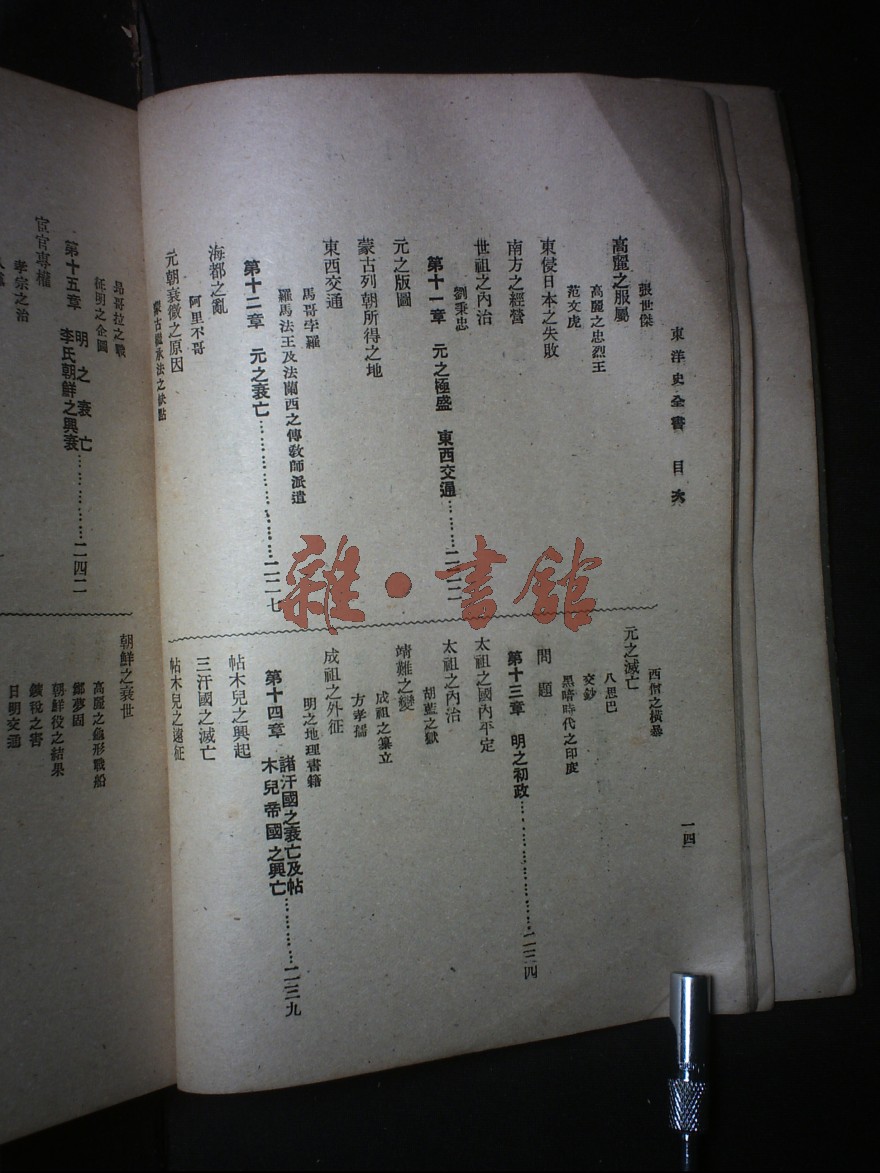 東洋史全書 目次
張世傑
高麗之服屬
高麗之忠烈王
范文虎
東侵日本之失敗
南方之經營
世祖之內治
劉秉忠
第十一章 元之極盛 東西交通……二二二
元之版圖
蒙古列朝所得之地
東西交通
馬哥孛羅
羅馬法王及法蘭西之傳敎師派遣
第十二章 元之衰亡……………………二二七
海都之亂
阿里不哥
元朝衰微之原因
蒙古繼承法之缺點
西僧之橫暴
元之滅亡
八思巴
交鈔
黑暗時代之印度
問題
第十三章 明之初政……………………二三四
太祖之國內平定
太祖之內治
胡藍之獄
靖難之變
成祖之簒立
方孝孺
成祖之外征
明之地理書籍
第十四章 諸汗國之衰亡及帖
木兒帝國之興亡…………二三九
帖木兒之興起
三汗國之滅亡
帖木兒之遠征
一四
昻哥拉之戰
征明之企圖
第十五章 明之衰亡
李氏朝鮮之興衰…………二四二
宦官專權
孝宗之治
朝鮮之衰世
高麗之龜形戰船
鄭夢周
朝鮮役之結果
鑛稅之害
日明交通
雜·書館